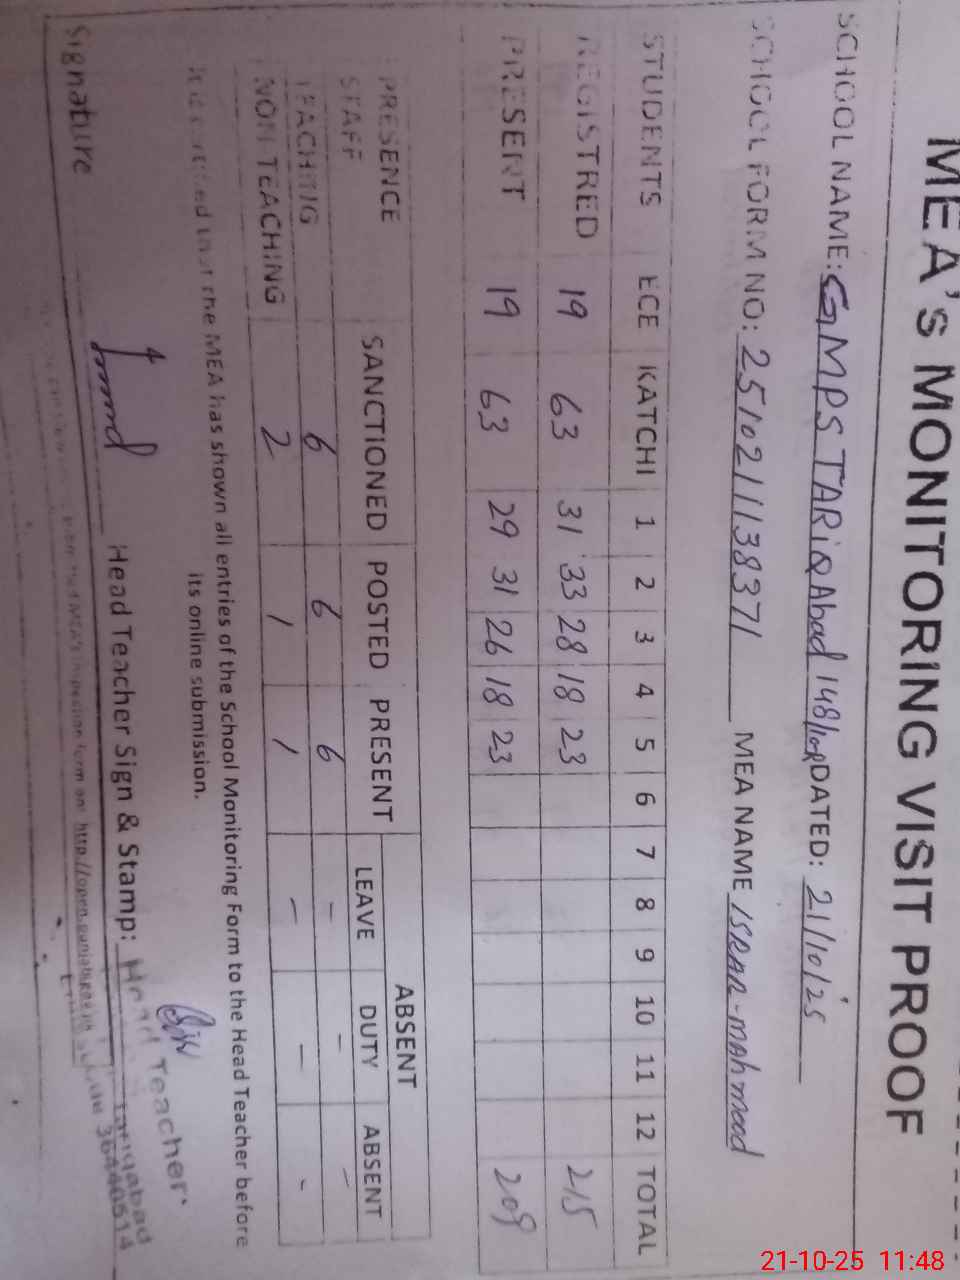 MEA's MONITORING VISIT PROOF
SCHOOL NAME: GMPS TARiQAbad 148/10R DATED: 21/10/25
SCHOOL FORM NO: 2510211138371 MEA NAME ISRAR-mAhmood
STUDENTS ECE KATCHI 1 2 3 4 5 6 7 8 9 10 11 12 TOTAL
REGISTRED 19 63 31 33 28 18 23 215
PRESENT 19 63 29 31 26 18 23 209
ABSENT
PRESENCE SANCTIONED POSTED PRESENT LEAVE DUTY ABSENT
STAFF
TEACHING 6 6 6 - - -
NON TEACHING 2 1 1 - - -
It is certified that the MEA has shown all entries of the School Monitoring Form to the Head Teacher before
its online submission.
Signature Head Teacher Sign & Stamp: Head Teacher
Tariqabad
36440514
MEA's inspection form on: http://open.punjab
21-10-25 11:48